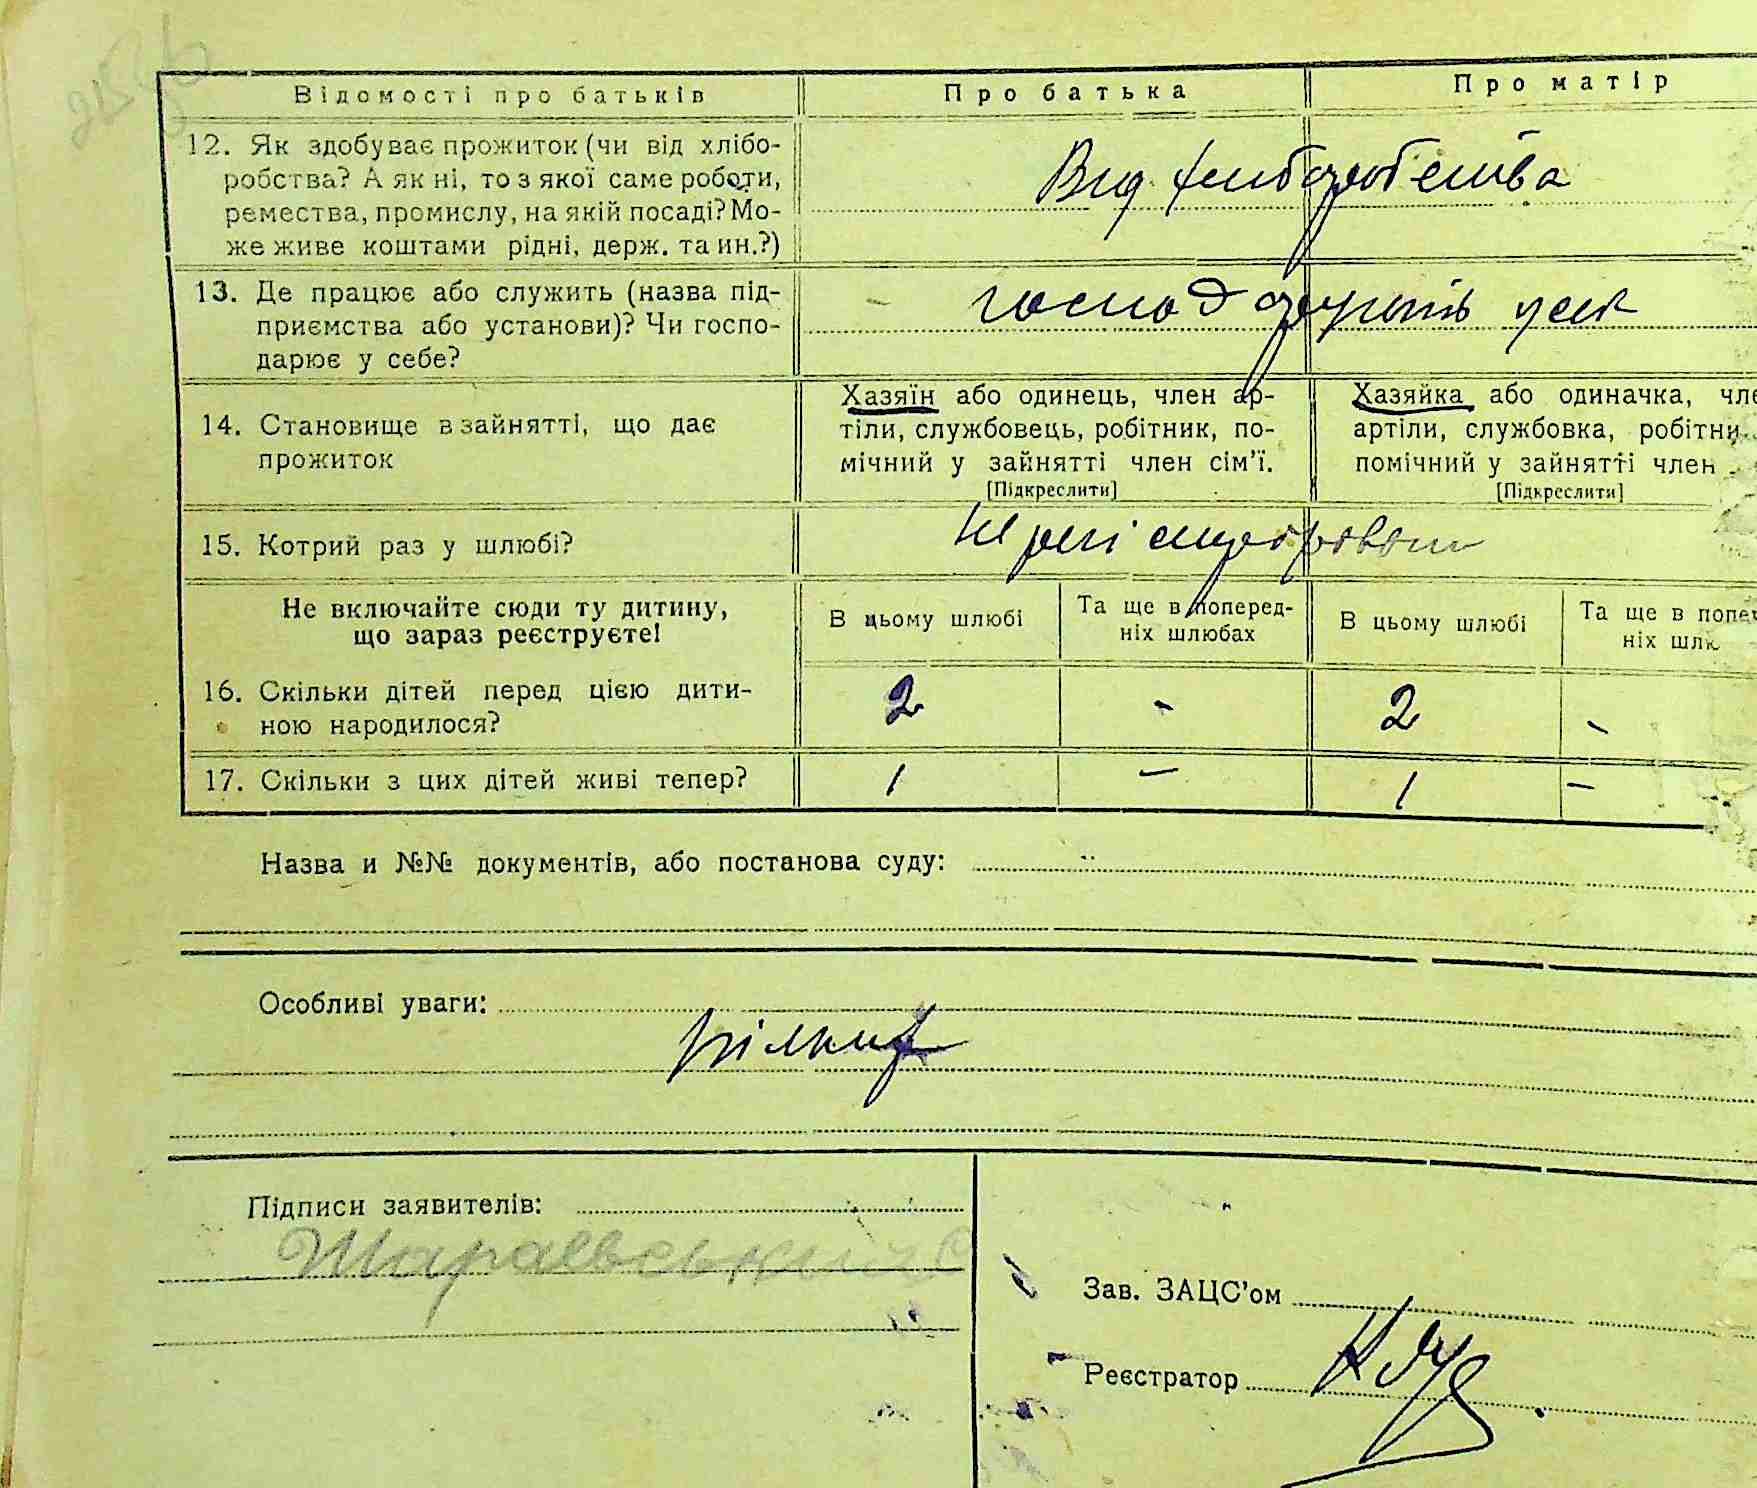 Відомості про батьків Про батька Про матір
12. Як здобуває прожиток (чи від хлібо-
робства? А як ні, то з якої саме роботи,
ремества, промислу, на якій посаді? Мо-
же живе коштами рідні, держ. та ин.?)
Вид хлиборобства
13. Де працює або служить (назва під-
приємства або установи)? Чи госпо-
дарює у себе?
14. Становище в зайнятті, що дає
прожиток
Хазяїн або одинець, член ар-
тіли, службовець, робітник, по-
мічний у зайнятті член сім'ї.
[Підкреслити]
Хазяйка або одиначка, чле
артіли, службовка, робітни
помічний у зайнятті член
[Підкреслити]
15. Котрий раз у шлюбі?
Не включайте сюди ту дитину,
що зараз реєструєте!
В цьому шлюбі
Та ще в поперед-
ніх шлюбах
В цьому шлюбі
Та ще в попе
ніх шл
16. Скільки дітей перед цією дити-
ною народилося?
2 - 2 -
17. Скільки з цих дітей живі тепер? 1 - 1 -
Назва и №№ документів, або постанова суду:
Особливі уваги:
Підписи заявителів:
Шараевський
Зав. ЗАЦС'ом
Реєстратор